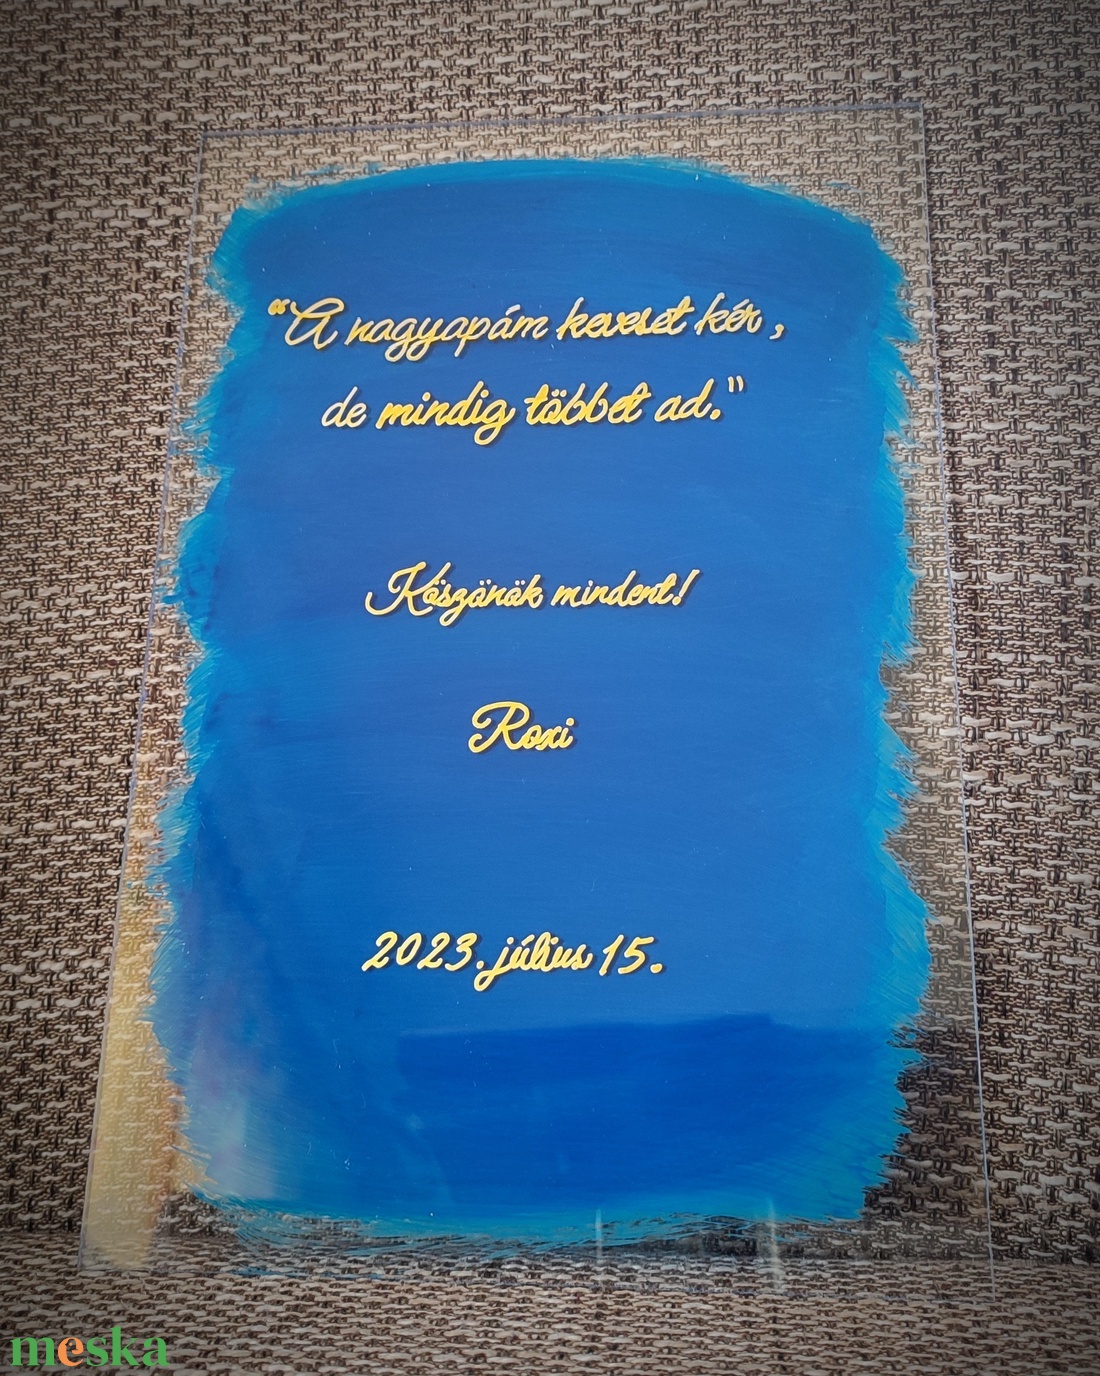 “A nagyapám keveset kér,
de mindig többet ad."
Köszönök mindent!
Roxi
2023. július 15.
meska